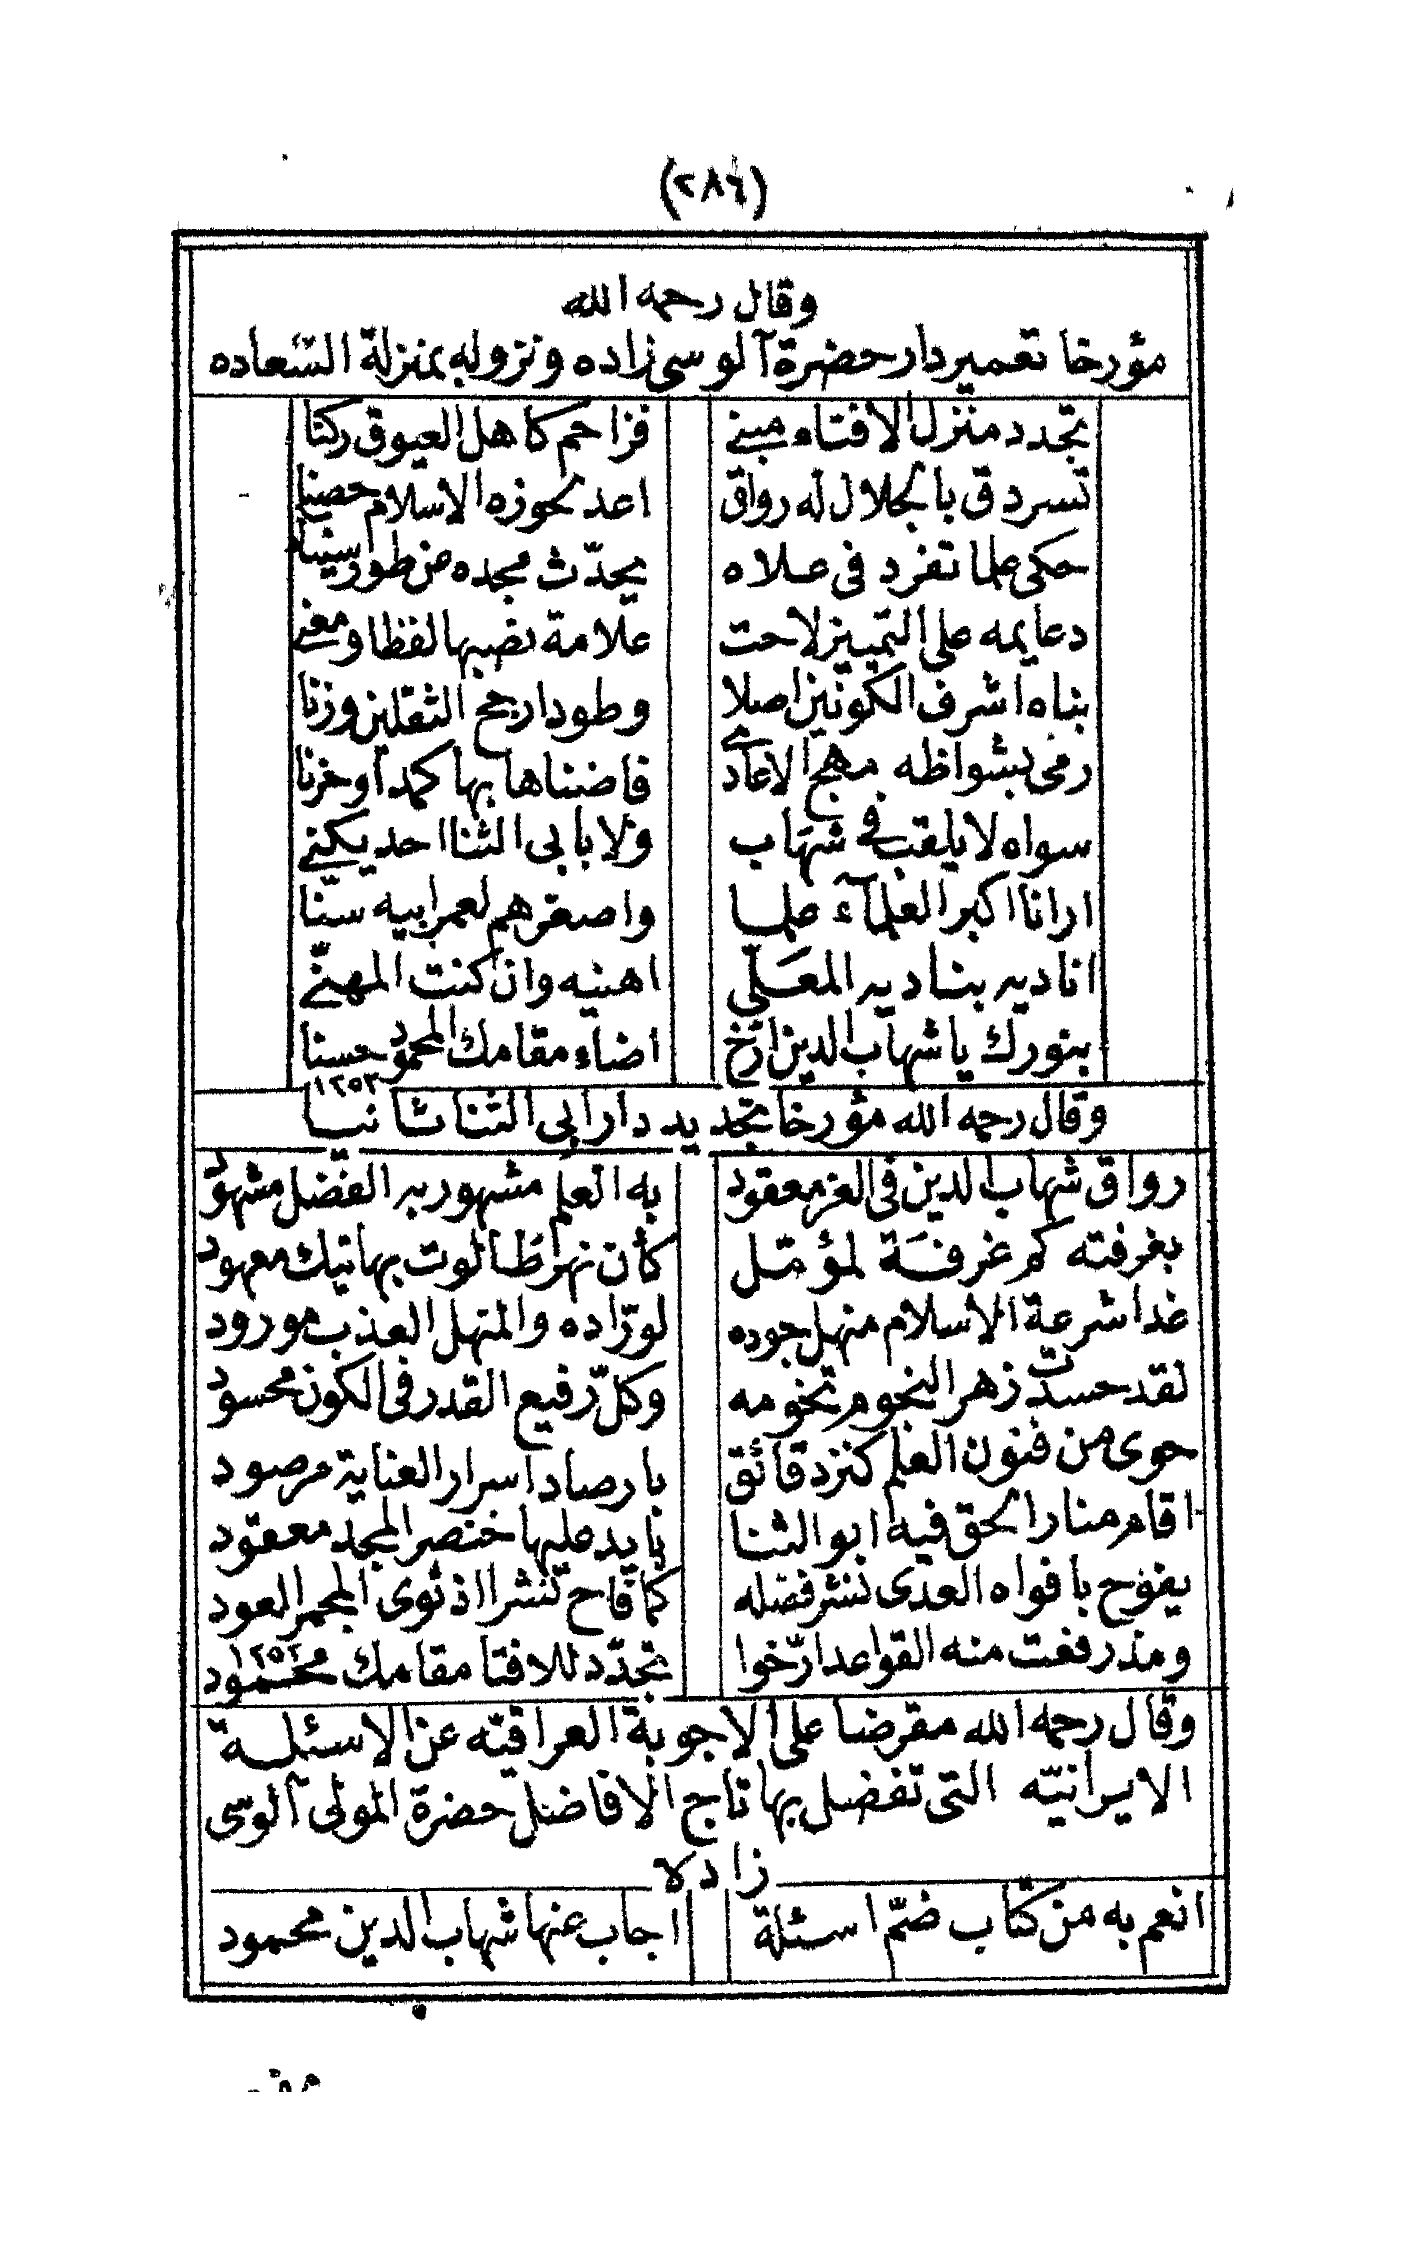 (٢٨٦)
وقال رحمه الله
مؤرخا تعمير دار حضرة آلوسي زاده ونزوله بمنزلة السّعاده
تجدد منزل الافتاء مبنى فزاحم كاهل العيوق ركنا
تسردق بالجلال له رواق اعد لحوزة الاسلام حصنا
حكى علما تفرد في علاه يحدّث مجده عن طور سينا
دعايمه على التمييز لاحت علامة نصبها لفظا ومعنى
بناه اشرف الكونين اصلا وطود ارجح الثقلين وزنا
رمى بشواظه مهج الاعادى فاضناها بها كمدا وحزنا
سواه لا يلقب في شهاب ولا بابى الثنا احد يكنى
ارانا اكبر العلمآء علما واصغرهم لعمر ابيه سنّا
اناديه بناديه المعَلّى اهنيه وان كنت المهنّى
بنورك يا شهاب الدين ارّخ اضاء مقامك المحمود حسنا
١٢٥٢
وقال رحمه الله مؤرخا تجديد دار ابى الثنا ثانيا
رواق شهاب الدين في العز معقود به العلم مشهور به الفضل مشهود
بغرفته كم غرفة لمؤمّل كأن نهر طالوت بهاتيك معهود
غدا شرعة الاسلام منهل جوده لورّاده والمنهل العذب مورود
لقد حسدت زهر النجوم تخومه وكلّ رفيع القدر في الكون محسود
حوى من فنون العلم كنز دقائق بارصاد اسرار العناية مرصود
اقام منار الحق فيه ابو الثنا بايد عليها خنصر المجد معقود
يفوح بافواه العدى نشر فضله كما فاح نشرا اذ ثوى المجمر العود
ومذ رفعت منه القواعد ارّخوا تجدّد للافتا مقامك محمود
١٢٥٢
وقال رحمه الله مقرضا على الاجوبة العراقيّه عن الاسئلة
الايرانيّه التي تفضل بها تاج الافاضل حضرة المولى آلوسي
زاده
انعم به من كتاب ضمّ اسئلة اجاب عنها شهاب الدين محمود